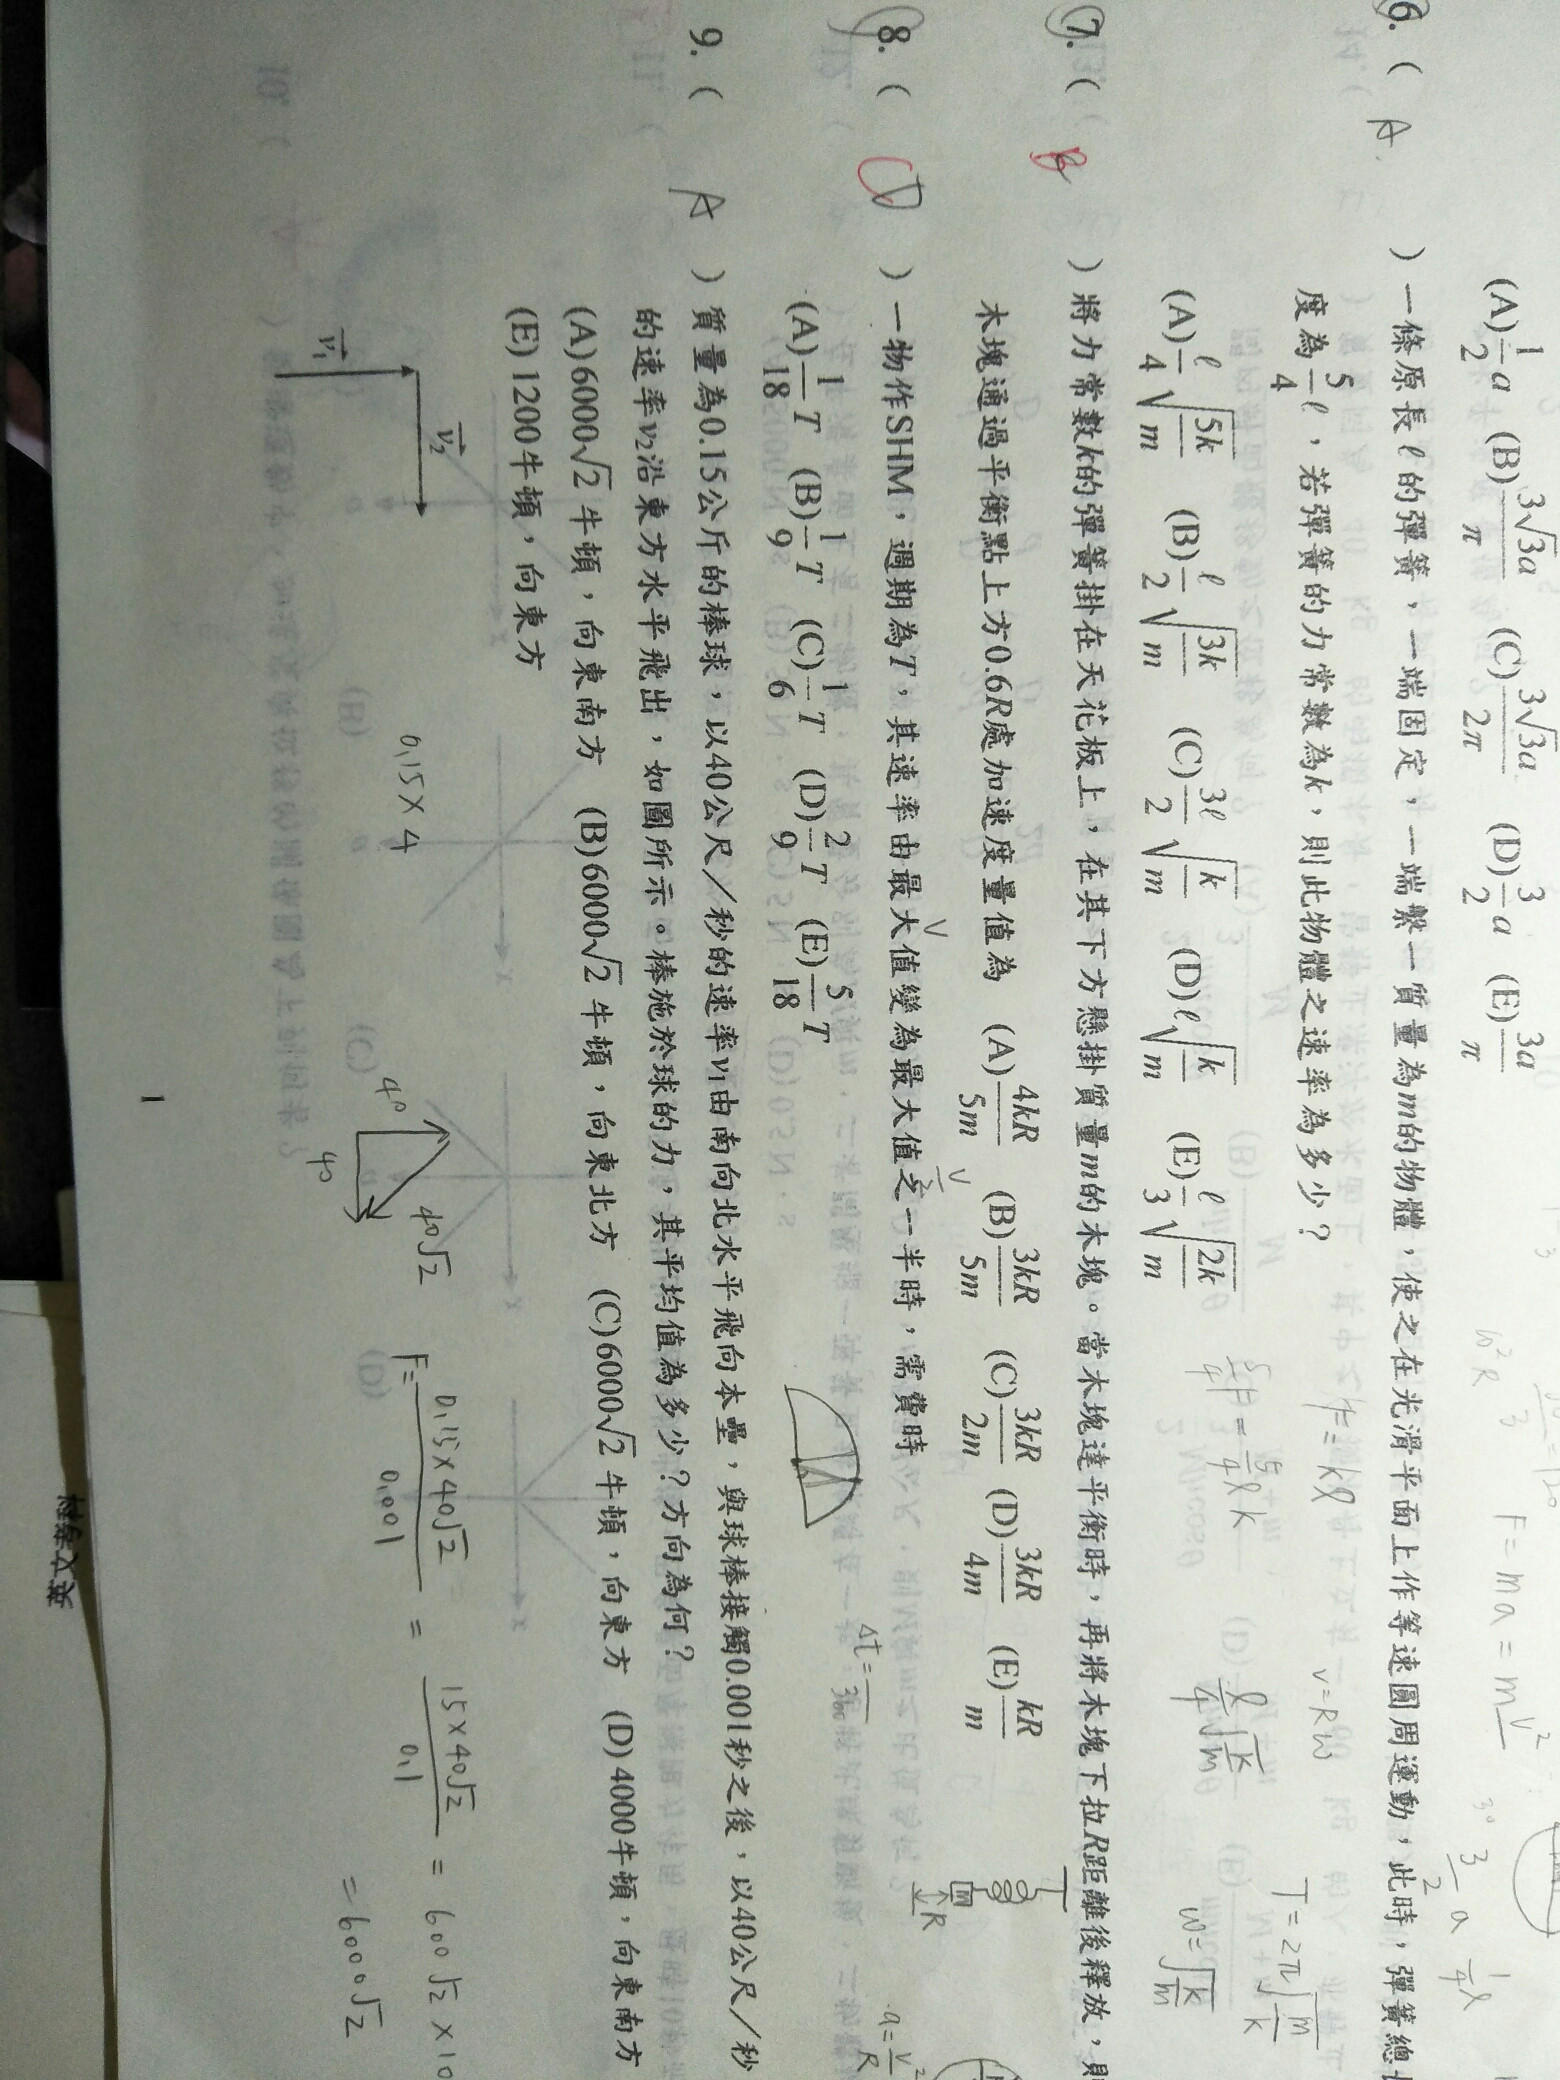 (A)1/2 a (B)3√3a/π (C)3√3a/2π (D)3/2 a (E)3a/π
6. ( A ) 一條原長ℓ的彈簧，一端固定，一端繫一質量為m的物體，使之在光滑平面上作等速圓周運動，此時，彈簧總
度為5/4 ℓ，若彈簧的力常數為k，則此物體之速率為多少？
(A)ℓ/4 √(5k/m) (B)ℓ/2 √(3k/m) (C)3ℓ/2 √(k/m) (D)ℓ√(k/m) (E)ℓ/3 √(2k/m)
7. ( B ) 將力常數k的彈簧掛在天花板上，在其下方懸掛質量m的木塊。當木塊達平衡時，再將木塊下拉R距離後釋放，則
木塊通過平衡點上方0.6R處加速度量值為 (A)4kR/5m (B)3kR/5m (C)3kR/2m (D)3kR/4m (E)kR/m
8. ( D ) 一物作SHM，週期為T，其速率由最大值變為最大值之一半時，需費時
(A)1/18 T (B)1/9 T (C)1/6 T (D)2/9 T (E)5/18 T
9. ( A ) 質量為0.15公斤的棒球，以40公尺／秒的速率v₁由南向北水平飛向本壘，與球棒接觸0.001秒之後，以40公尺／秒
的速率v₂沿東方水平飛出，如圖所示。棒施於球的力，其平均值為多少？方向為何？
(A)6000√2牛頓，向東南方 (B)6000√2牛頓，向東北方 (C)6000√2牛頓，向東方 (D)4000牛頓，向東南方
(E)1200牛頓，向東方
v₁ v₂
F=ma=m v²
3/2 a
1/4 ℓ
F=kℓ
v=Rw
T=2π√(m/k)
5/4 F=5/4 ℓk
ℓ/4 √(k/m)
w=√(k/m)
m
R
a=v²/R
Δt=
0.15×4
40
40
40√2
F=0.15×40√2/0.001 = 15×40√2/0.1 = 600√2×10
=6000√2
1